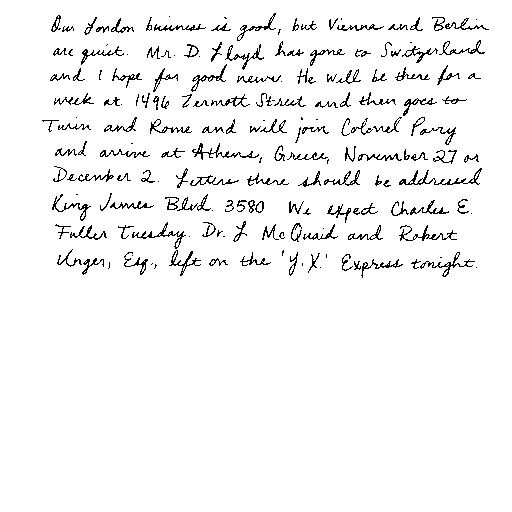 Our London business is good, but Vienna and Berlin
are quiet. Mr. D. Lloyd has gone to Switzerland
and I hope for good news. He will be there for a
week at 1496 Zermott Street and then goes to
Turin and Rome and will join Colonel Parry
and arrive at Athens, Greece, November 27 or
December 2. Letters there should be addressed
King James Blvd. 3580 We expect Charles E.
Fuller Tuesday. Dr. L McQuaid and Robert
Unger, Esq., left on the 'Y.X.' Express tonight.